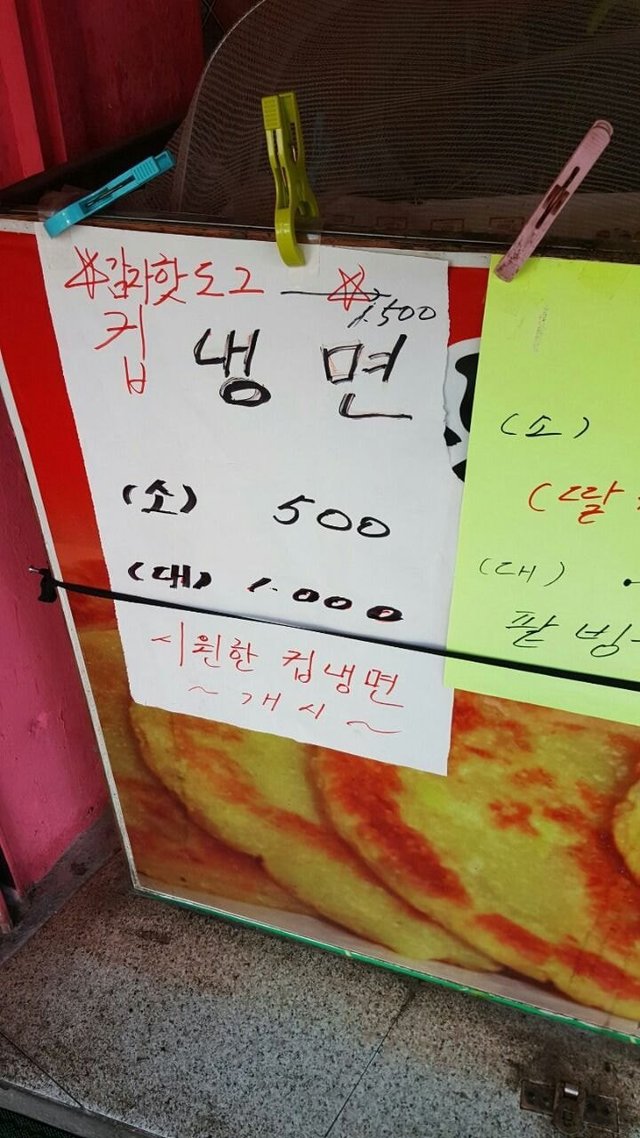 ☆감자핫도그 → ☆ 1.500
컵 냉 면
(소) 500
(대) 1.000
시원한 컵냉면
~ 개 시 ~
(소)
(딸
(대)
팥 빙